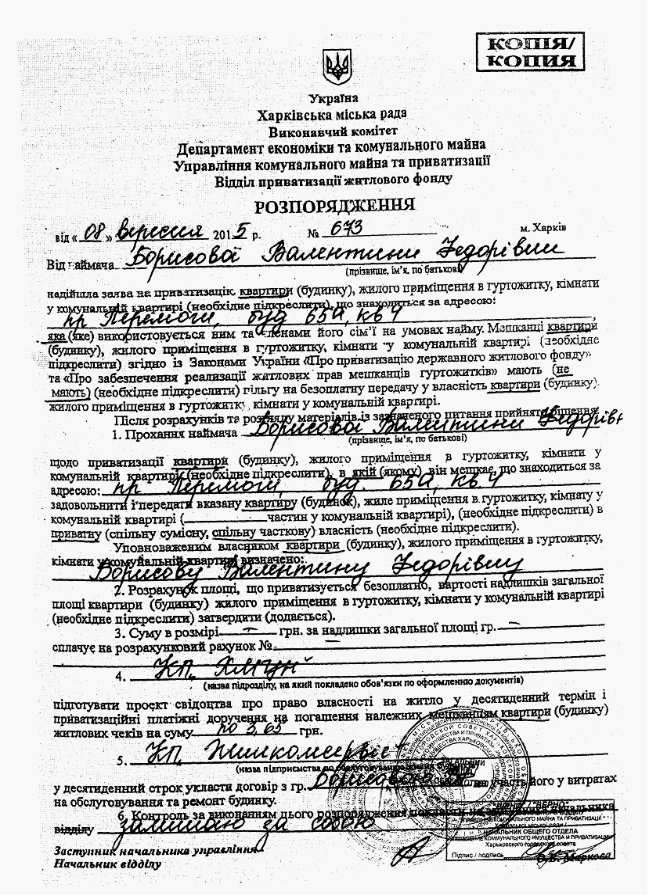 КОПІЯ/
КОПИЯ
Україна
Харківська міська рада
Виконавчий комітет
Департамент економіки та комунального майна
Управління комунального майна та приватизації
Відділ приватизації житлового фонду
РОЗПОРЯДЖЕННЯ
від « 08 » вересня 2015 р. № 673 м. Харків
Від наймача Борисової Валентини Федорівни
(прізвище, ім'я, по батькові)
надійшла заява на приватизацію квартири (будинку), жилого приміщення в гуртожитку, кімнати
у комунальній квартирі (необхідне підкреслити), що знаходиться за адресою:
пр Перемоги, буд 65а, кв 4,
яка (яке) використовується ним та членами його сім'ї на умовах найму. Мешканці квартири
(будинку), жилого приміщення в гуртожитку, кімнати у комунальній квартирі (необхідне
підкреслити) згідно із Законами України «Про приватизацію державного житлового фонду»
та «Про забезпечення реалізації житлових прав мешканців гуртожитків» мають (не
мають) (необхідне підкреслити) пільгу на безоплатну передачу у власність квартири (будинку),
жилого приміщення в гуртожитку, кімнати у комунальній квартирі.
Після розрахунків та розгляду матеріалів із зазначеного питання прийнято рішення:
1. Прохання наймача Борисової Валентини Федорівни
(прізвище, ім'я, по батькові)
щодо приватизації квартири (будинку), жилого приміщення в гуртожитку, кімнати у
комунальній квартирі (необхідне підкреслити), в якій (якому) він мешкає, що знаходиться за
адресою: пр Перемоги, буд 65а, кв. 4
задовольнити і передати вказану квартиру (будинок), жиле приміщення в гуртожитку, кімнату у
комунальній квартирі (частин у комунальній квартирі), (необхідне підкреслити) в
приватну (спільну сумісну, спільну часткову) власність (необхідне підкреслити).
Уповноваженим власником квартири (будинку), жилого приміщення в гуртожитку,
кімнати у комунальній квартирі визначено:
Борисову Валентину Федорівну
2. Розрахунок площі, що приватизується безоплатно, вартості надлишків загальної
площі квартири (будинку) жилого приміщення в гуртожитку, кімнати у комунальній квартирі
(необхідне підкреслити) затвердити (додається).
3. Суму в розмірі — грн. за надлишки загальної площі гр. —
сплачує на розрахунковий рахунок № —
4. КП
(назва підрозділу, на який покладено обов'язки по оформленню документів)
підготувати проєкт свідоцтва про право власності на житло у десятиденний термін і
приватизаційні платіжні доручення на погашення належних мешканцям квартири (будинку)
житлових чеків на суму по 3,65 грн.
5. КП Жилкомсервіс
(назва підприємства по обслуговуванню будинку)
у десятиденний строк укласти договір з гр. участь його у витратах
на обслуговування та ремонт будинку.
6. Контроль за виконанням цього розпорядження начальника
відділу залишаю за собою
Заступник начальника управління
Начальник відділу
НАЧАЛЬНИК ОБЩЕГО ОТДЕЛА
Харьковского городского совета
Підпис / подпись